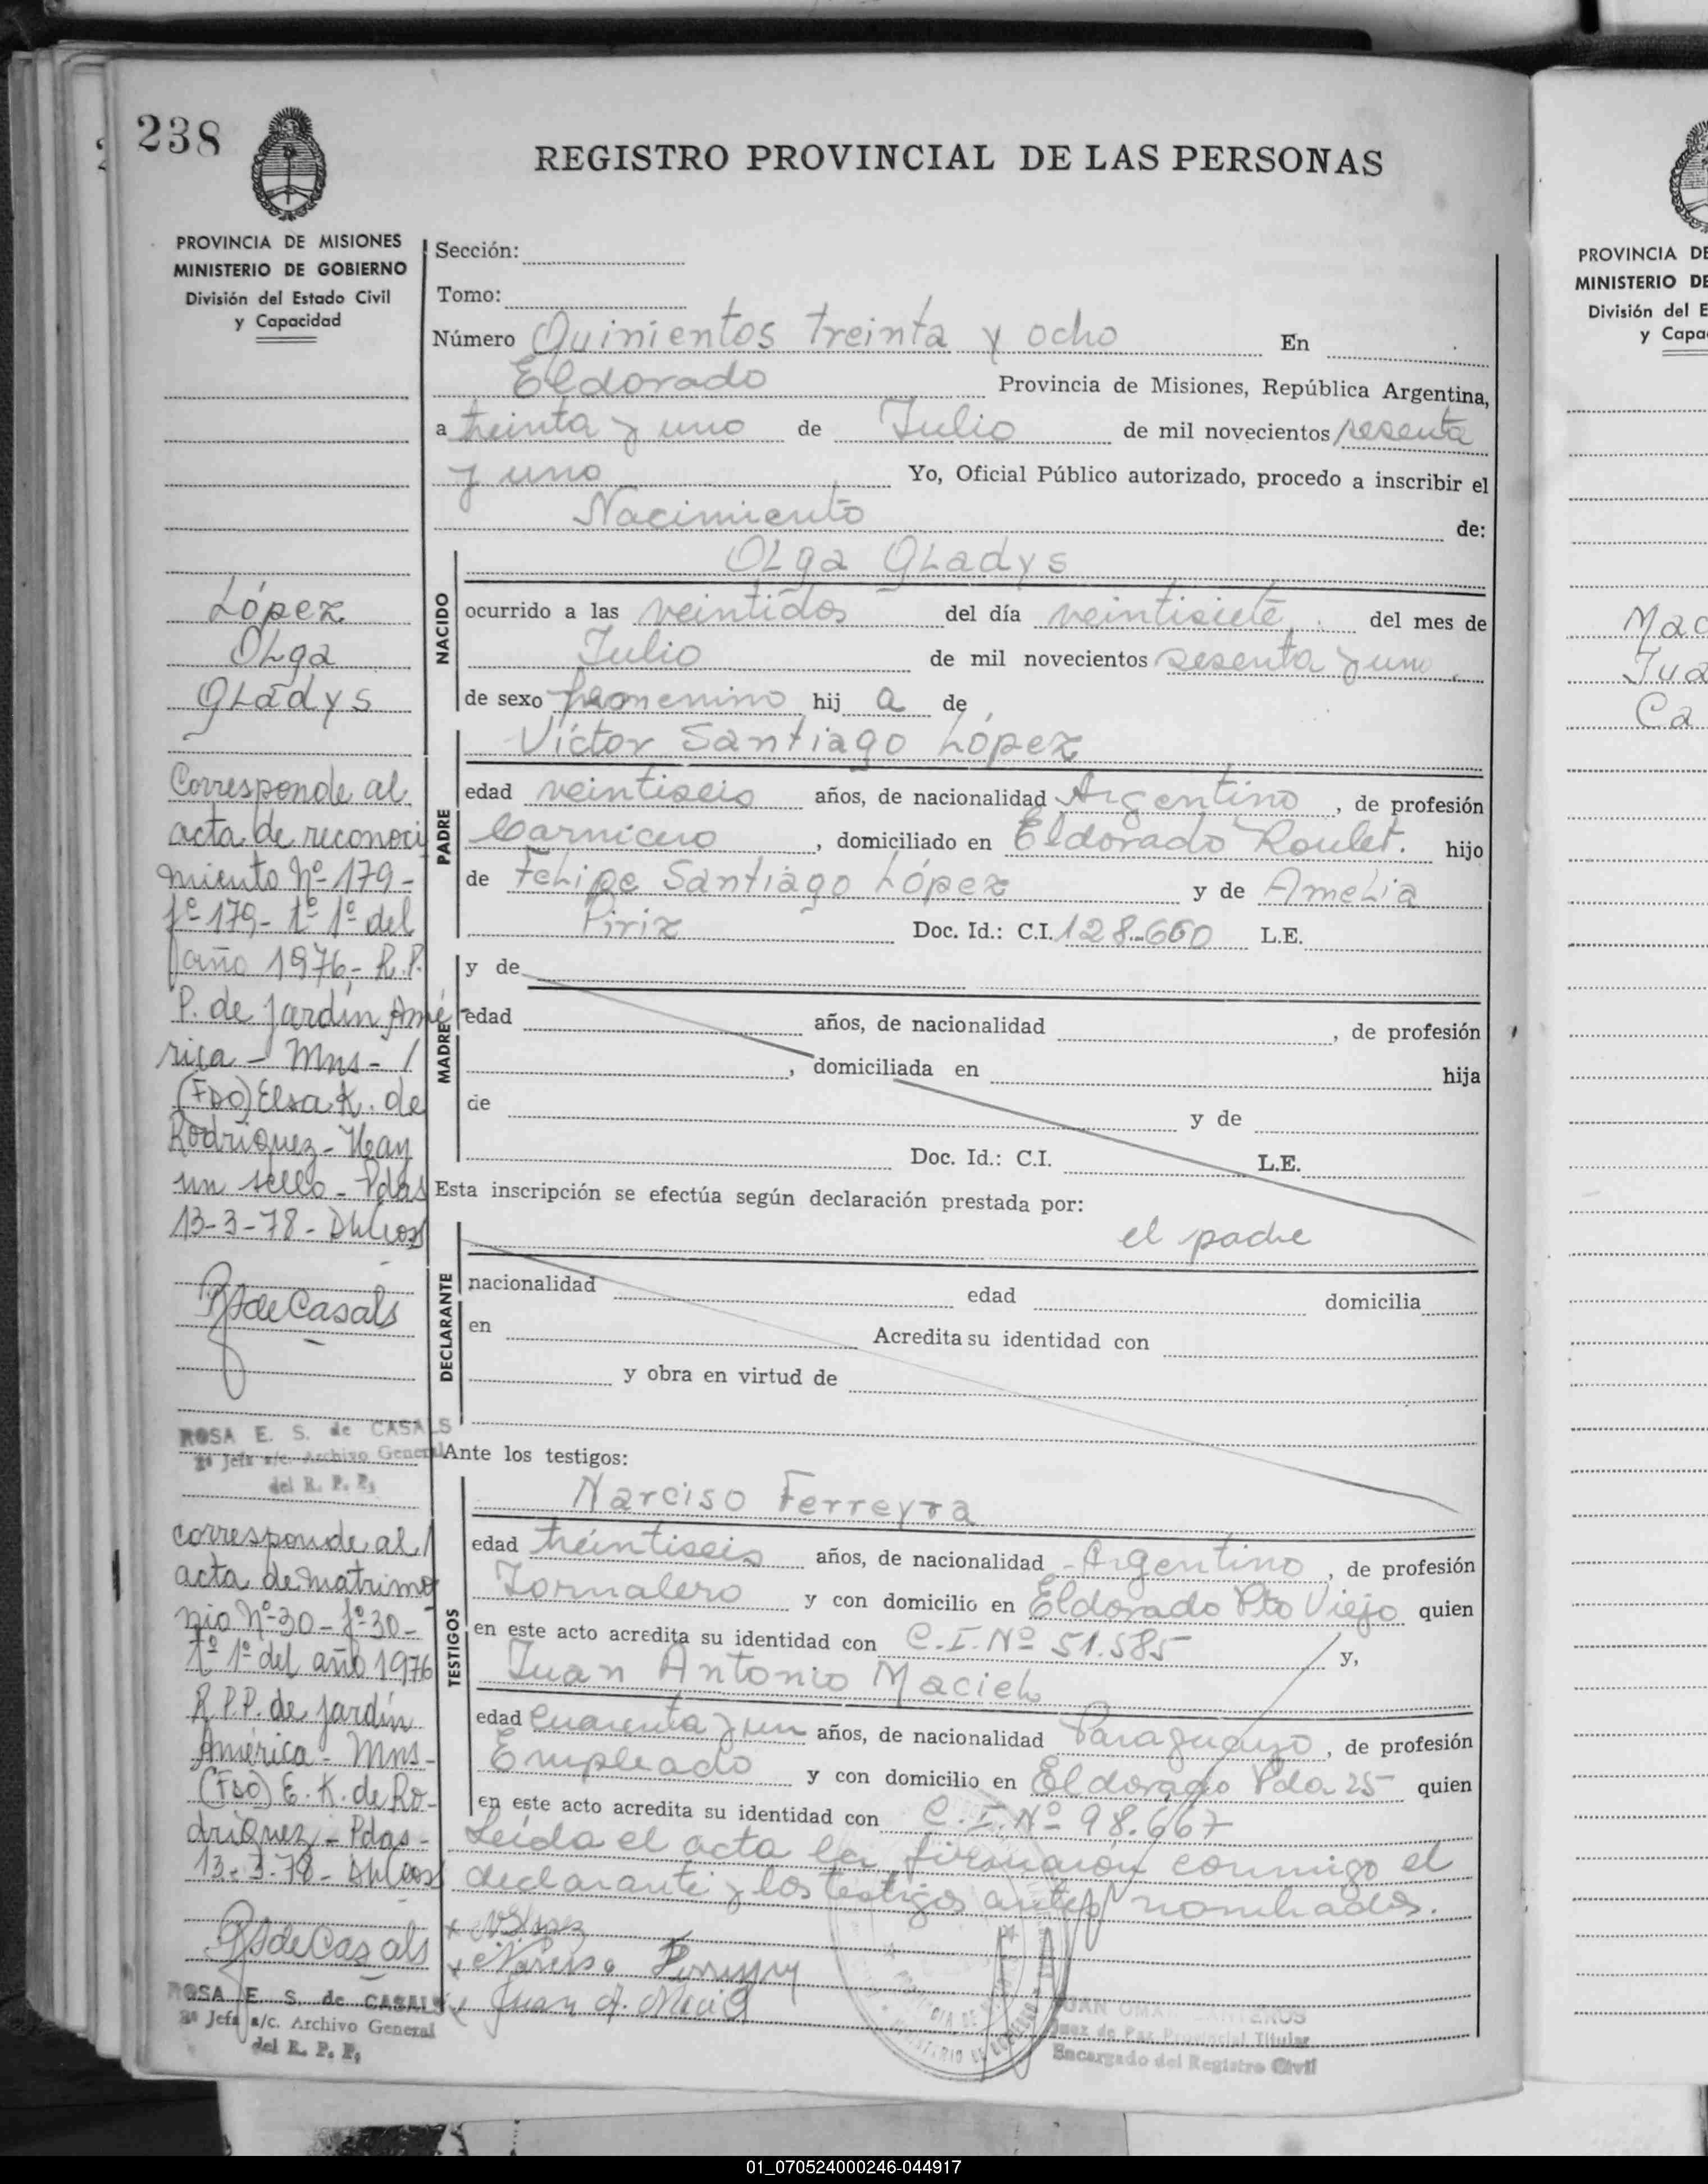 238
REGISTRO PROVINCIAL DE LAS PERSONAS
PROVINCIA DE MISIONES
MINISTERIO DE GOBIERNO
División del Estado Civil
y Capacidad
López
Olga
Gladys
Corresponde al
acta de reconoci
miento Nº 179-
fº 179- tº 1º del
año 1976- R.P.
P. de Jardín Amé
rica - Mns - /
(FDO) Elsa K. de
Rodríguez - Hay
un sello - Pdas
13-3-78 -
RSdeCasals
ROSA E. S. de CASALS
2ª Jefa a/c. Archivo General
del R. P. P.
corresponde al /
acta de matrimo
nio Nº 30 - fº 30 -
tº 1º del año 1976
R.P.P. de Jardín
América - Mns -
(FDO) E. K. de Ro-
dríguez - Pdas -
13-3-78 -
RSdeCasals
ROSA E. S. de CASALS
2ª Jefa a/c. Archivo General
del R. P. P.
Sección:
Tomo:
Número Quinientos treinta y ocho En
Eldorado Provincia de Misiones, República Argentina,
a treinta y uno de Julio de mil novecientos sesenta
y uno Yo, Oficial Público autorizado, procedo a inscribir el
Nacimiento de:
NACIDO
Olga Gladys
ocurrido a las veintidos del día veintisiete del mes de
Julio de mil novecientos sesenta y uno
de sexo femenino hij a de
PADRE
Víctor Santiago López
edad veintiseis años, de nacionalidad Argentino, de profesión
Carnicero, domiciliado en Eldorado Roulet. hijo
de Felipe Santiago López y de Amelia
Piriz Doc. Id.: C.I. 128.660 L.E.
MADRE
y de
edad años, de nacionalidad , de profesión
, domiciliada en hija
de y de
Doc. Id.: C.I. L.E.
Esta inscripción se efectúa según declaración prestada por:
el padre
DECLARANTE
nacionalidad edad domicilia
en Acredita su identidad con
y obra en virtud de
Ante los testigos:
TESTIGOS
Narciso Ferreyra
edad treintiseis años, de nacionalidad Argentino, de profesión
Jornalero y con domicilio en Eldorado Pto Viejo quien
en este acto acredita su identidad con C.I. Nº 51.585 y,
Juan Antonio Maciel
edad cuarenta y un años, de nacionalidad Paraguayo, de profesión
Empleado y con domicilio en Eldorado Pda 25 quien
en este acto acredita su identidad con C.I. Nº 98.667
Leída el acta la firmaron conmigo el
declarante y los testigos antes nombrados.
x
x Narciso Ferreyra
x Juan A. Maciel
Juez de Paz Provincial Titular
Encargado del Registro Civil
PROVINCIA DE
MINISTERIO DE
División del E
y Capa
Mac
Jua
Ca
01_070524000246-044917